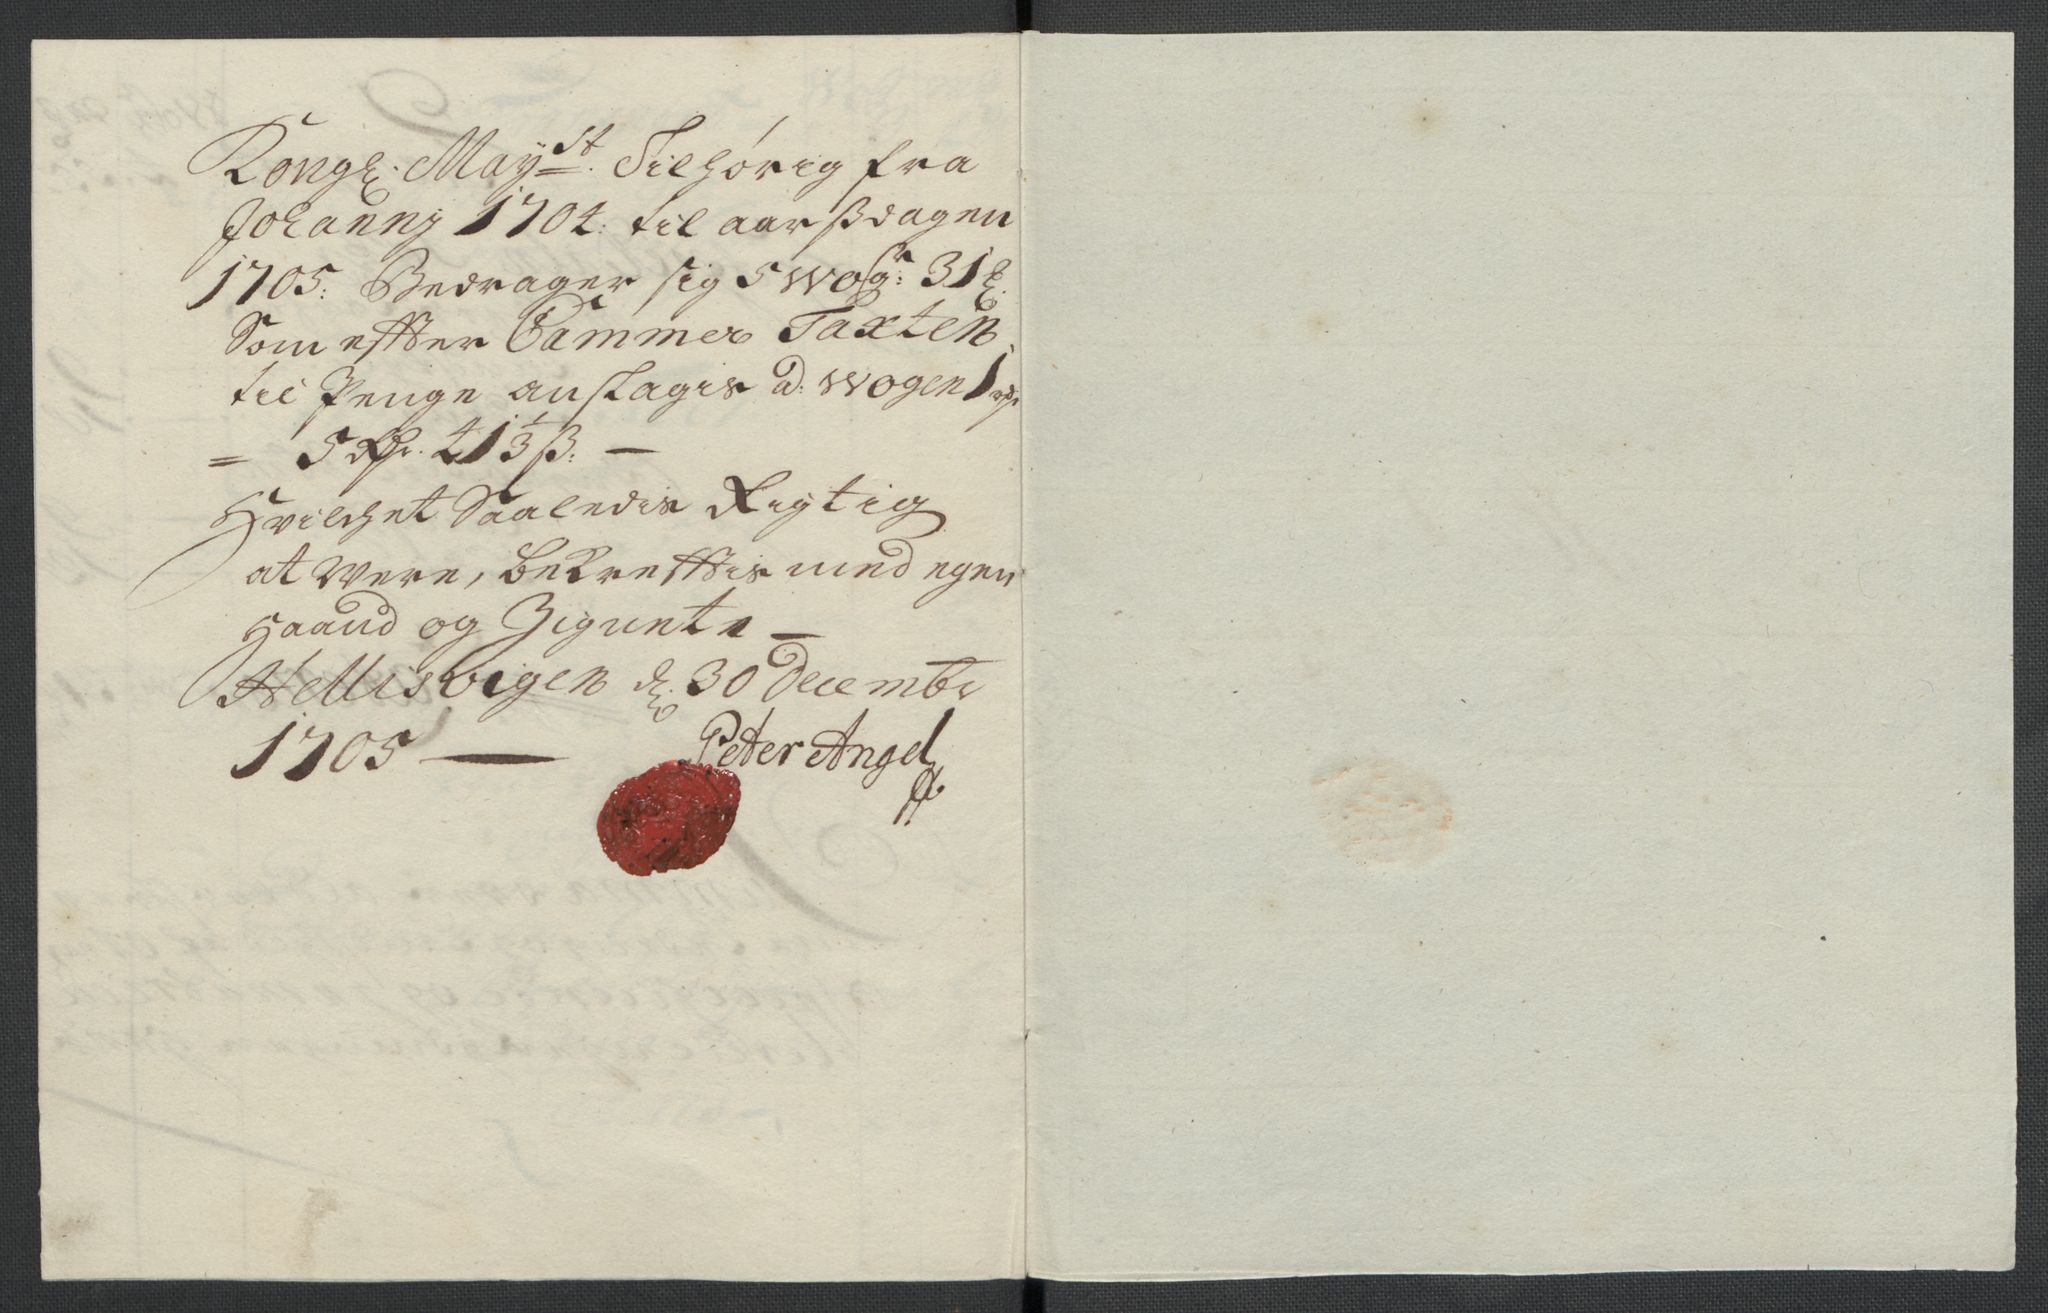 Kongl. Mayst. Tilhørig fra
Johannj 1704. til aarsßdagen
1705. Bedrager sig 5 wogr. 31 ℔.
Som effter Cammer Taxten
til Penge anslagis ad. wogen 1 rdr
= 5 Rdr. 41⅓ ß. —
Hvilchet Saaledis Rigtig
at were, bekrefftis med egen
Haand og Zignete —
Hellisvigen d. 30 Decembr
1705 — Peter Angel